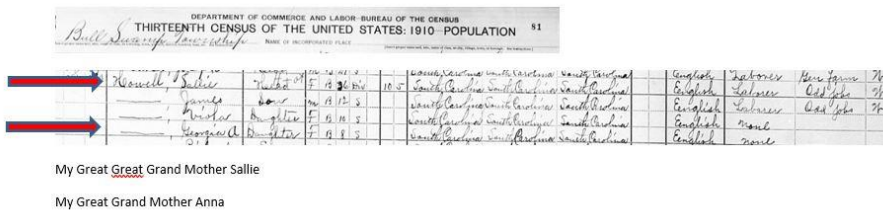 DEPARTMENT OF COMMERCE AND LABOR-BUREAU OF THE CENSUS
THIRTEENTH CENSUS OF THE UNITED STATES: 1910 POPULATION 81
Bull Swamp Township NAME OF INCORPORATED PLACE
Howell, Sallie Head F B 36 10 5 South Carolina South Carolina South Carolina English Laborer Gen Farm
James Son m B 12 S South Carolina South Carolina South Carolina English Laborer Odd jobs
Viola Daughter F B 10 S South Carolina South Carolina South Carolina English Laborer Odd jobs
Georgia A Daughter F B 8 S South Carolina South Carolina South Carolina English none
none
My Great Great Grand Mother Sallie
My Great Grand Mother Anna